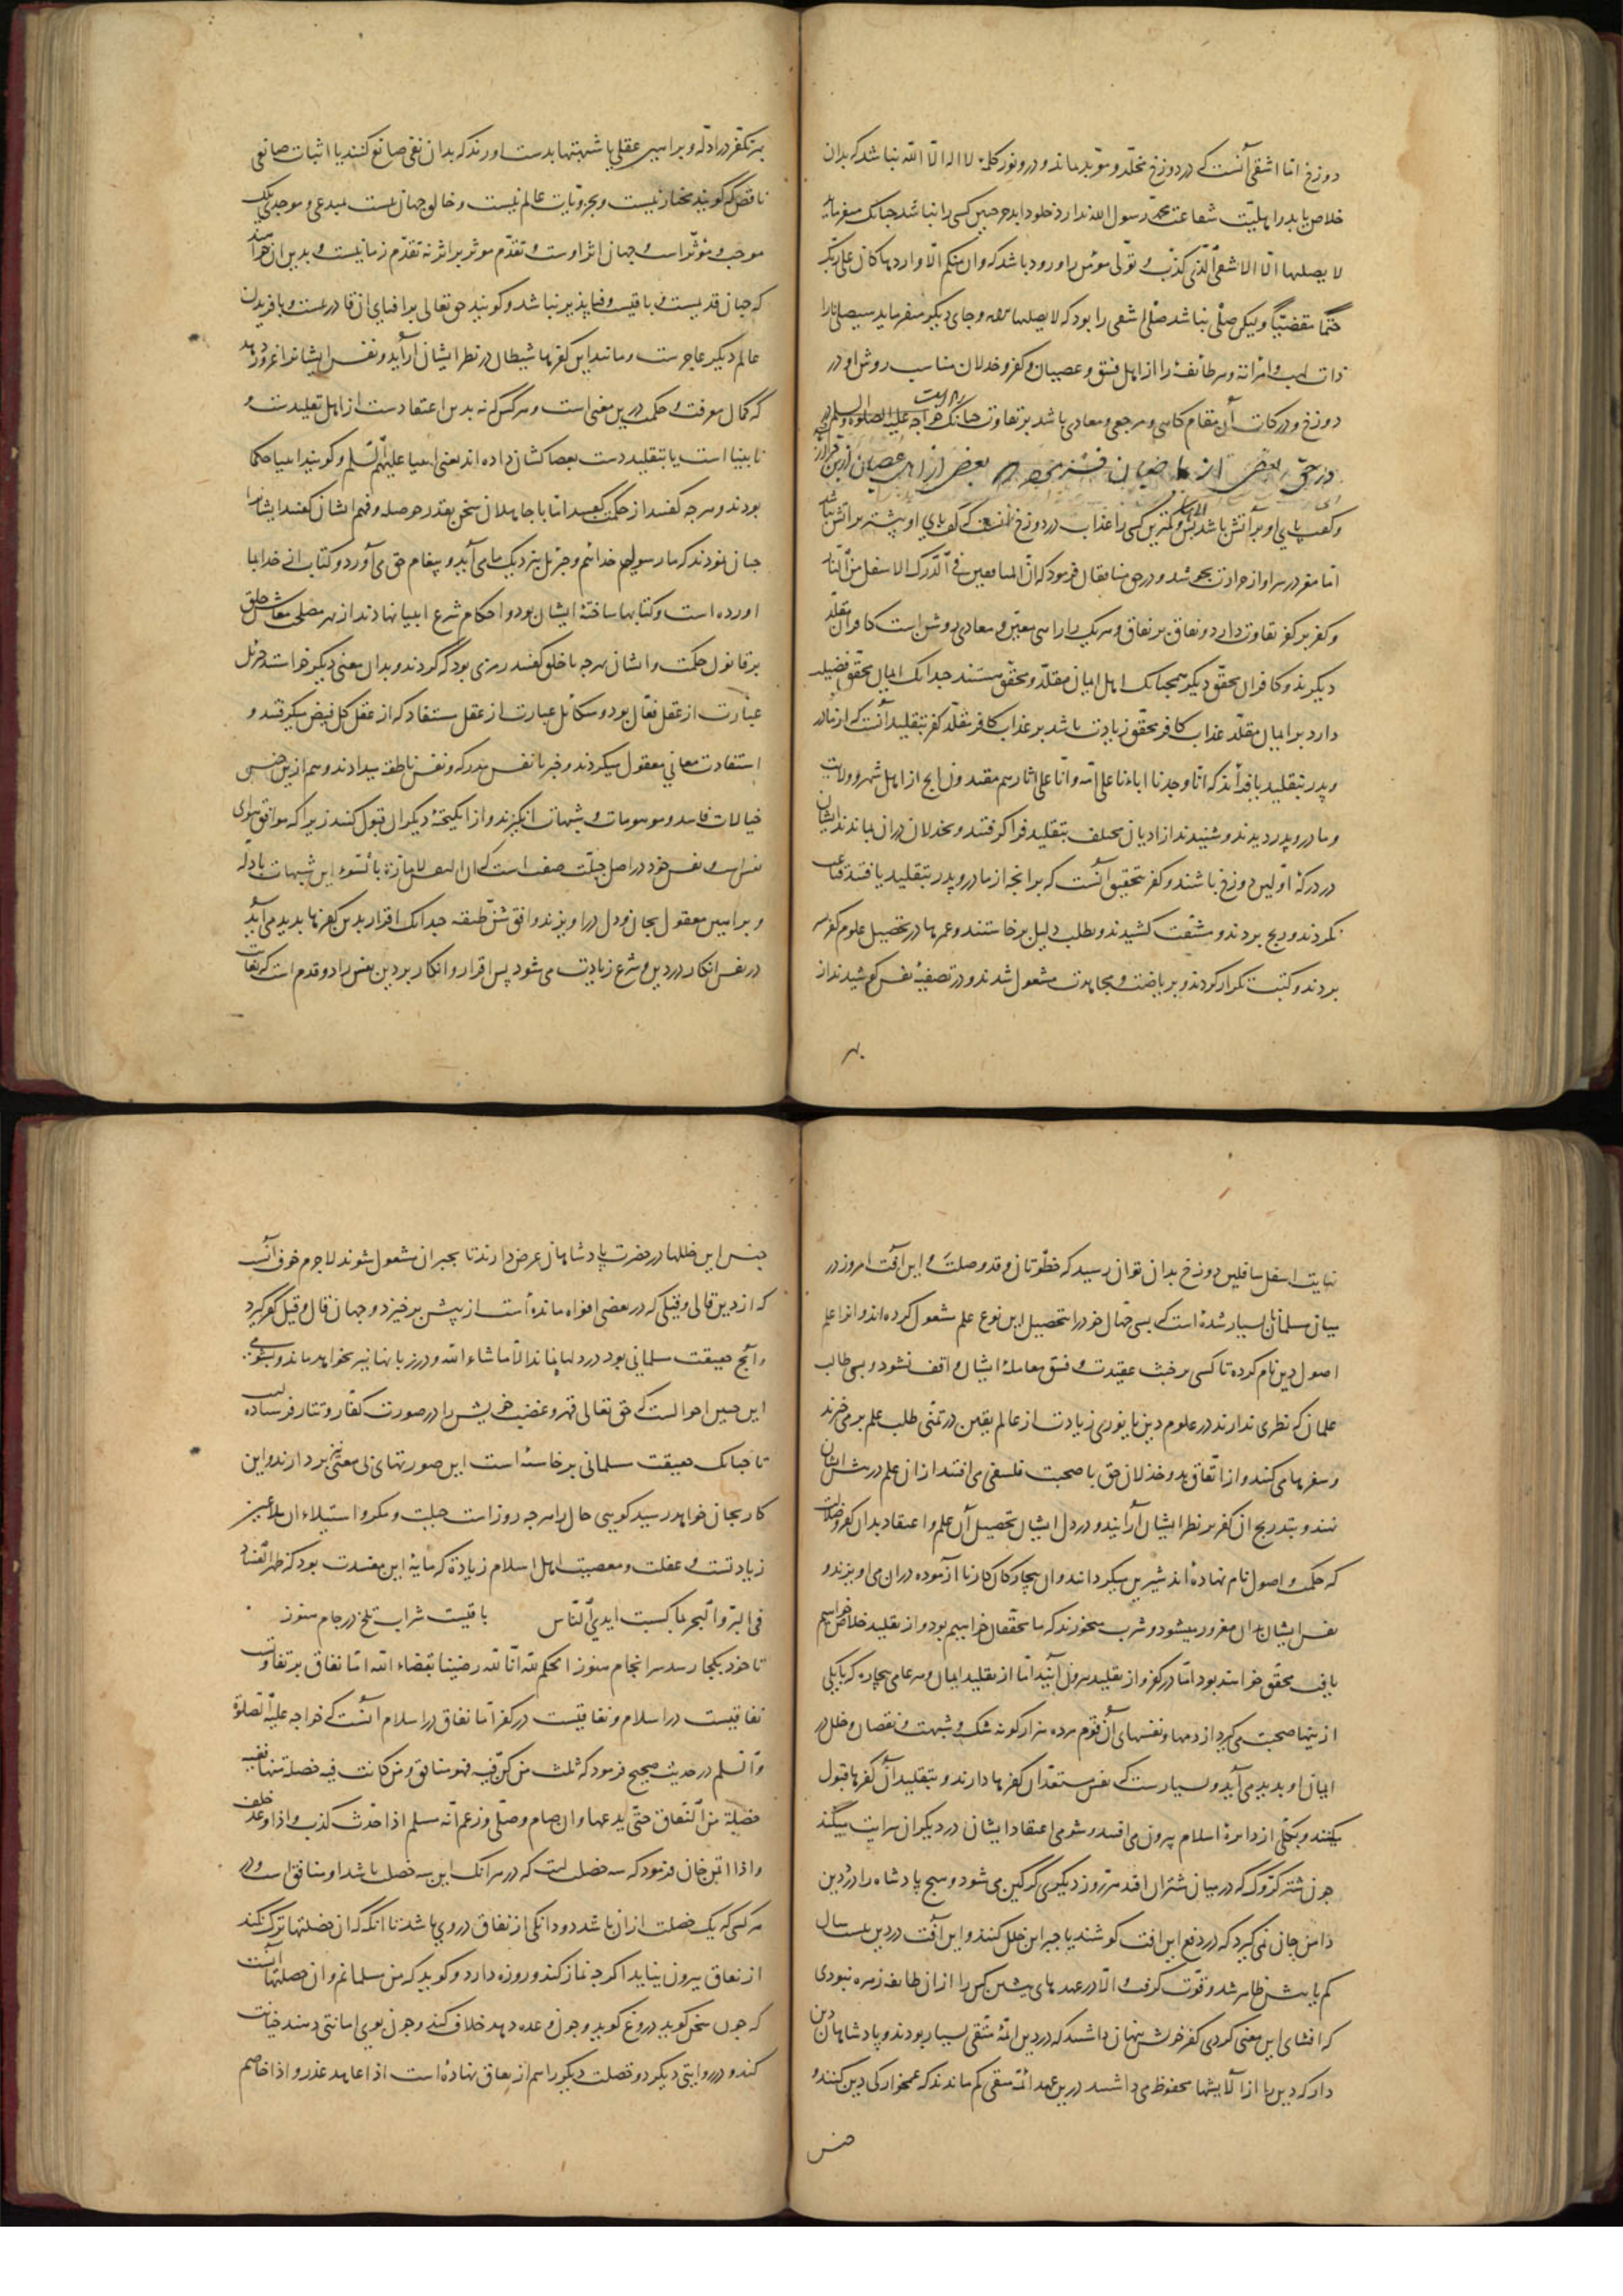 دوزخ اما اشقی آنست که در دوزخ مخلّد و مؤبد ماند و درو نور کلمۀ لا اله الّا اللّه نباشد که بدان
خلاص یابد و اهلیّت شفاعت محمّد رسول الله ندارد خلود ابد جز چنین کسی را نباشد چنانک میفرماید
لا یصلیها الّا الاشقی الّذی کذّب و تولّی مؤمن را ورود باشد که وان منکم الّا واردها کان علی ربّک
حتمًا مقضیّاً ولیکن صلّی نباشد صلّی اشقی را بود که لا یصلیها و جای دیگر میفرماید سیصلی نارا
ذات لهب و امراته و هر طائفه را از اهل فسق و عصیان و کفر و خذلان مناسب روش او در
دوزخ و درکات آن مقام کاهی و مرجعی و معادی باشد بر تفاوت چنانک خواجه علیه الصلوة والسلم
در حق بعضی از عاصیان بعضی از اهل عصیان
و کعب پای او بر آتش باشد و کمترین کسی را عذاب در دوزخ آنست که کف پای او بیشتر بر آتش نباشد
اما مغز در سر او از حرارت بجوشد و در حق منافقان فرمود که انّ المنافقین فی الدّرک الاسفل من النّار
و کفر بر کفر تفاوت دارد و نفاق بر نفاق و هر یک را راهی معیّن و معادی روشن است کافران مقلّد
دیگرند و کافران محقّق دیگر همچنانک اهل ایمان مقلّد و محقّق هستند چنانک ایمان محقّق فضیلت
دارد بر ایمان مقلّد عذاب کافر محقّق زیادت باشد بر عذاب کافر مقلّد کفر بتقلید آنست که از مادر
و پدر بتقلید یافته‌اند که انّا وجدنا اباءنا علی امّة وانّا علی اثارهم مقتدون انچ از اهل شهر و ولایت
و مادر و پدر دیدند و شنیدند از ادیان مختلف بتقلید فرا گرفتند و بخذلان در ان بماندند ایشان
در درکۀ اوّلین دوزخ باشند و کفر بتحقیق آنست که بر انچه از مادر و پدر بتقلید یافتند قناعت
نکردند و رنج بردند و مشقّت کشیدند و بطلب دلیل برخاستند و عمرها در تحصیل علوم کفر بسر
بردند و کتب تکرار کردند و بریاضت و مجاهدت مشغول شدند و در تصفیۀ نفس کوشیدند از
بهر
بهر تفکّر در ادلّه و براهین عقلی با شبهتها بدست اورند که بدان نفی صانع کنند یا اثبات صانعی
ناقص که گویند مختار نیست و بجزویات عالم نیست و خالق جهان نیست مبدعی و موجدی بلک
موجب و مؤثّر است و جهان اثر اوست و تقدّم موثّر بر اثر نه تقدّم زمانیست و بدین ان خواهند
که جهان قدیمست و باقیست و فنا پذیر نباشد و گویند حق تعالی بر افنای ان قادر نیست و بافریدن
عالم دیگر عاجزست و مانند این کفرها شیطان در نظر ایشان آراید و نفس ایشانرا غرور دهد
که کمال معرفت و حکمت درین معنی است و هر کس که نه بدین اعتقادست از اهل تقلیدست و
نابینا است یا بتقلید دست بعصا کشان داده اند یعنی انبیا علیهم السّلم و گویند انبیا حکما
بودند و هرچه گفتند از حکمت گفتند امّا با جاهلان سخن بقدر حوصله و فهم ایشان گفتند ایشانرا
چنان نمودند که ما رسولیم خدائیم و جبرئیل بنزدیک ما می آید و پیغام حق می آورد و کتاب از خدا بما
اورده است و کتابها ساختۀ ایشان بود و احکام شرع انبیا نهادند از بهر مصلحت معاش خلق
بر قانون حکمت و ایشان هرچه با خلق گفتند رمزی بود که گردند و بدان معنی دیگر خواستند جبرئیل
عبارت از عقل فعّال بود و میکائیل عبارت از عقل مستفاد که از عقل کل فیض میگرفتند و
استفادت معانی معقول میکردند و خبر با نفس مدرکه و نفس ناطقه میدادند و هم ازین جنس
خیالات فاسد و موهومات و شبهات انگیزند و از انگیختۀ دیگران قبول کنند زیرا که موافق هوای
نفس است و نفس خود در اصل جبلّت صفت است که انّ النفس لامّارة بالسّوء این شبهات با دلّه
و براهین معقول بجان و دل در اویزند و افق شنّ طبقه چندانک اقرار بدین کفرها پدید می آید
در نفس انکار در دین و شرع زیادت می شود پس اقرار و انکار بر دین نفس را دو قدم است که بغایت
نهایت اسفل سافلین دوزخ بدان توان رسید که خطوتان وقد وصلت و این آفت امروز در
میان مسلمانان بسیار شده است که بسی جهّال خود را بتحصیل این نوع علم مشغول کرده اند و انرا علم
اصول دین نام کرده تا کسی بر خبث عقیدت و فسق معاملۀ ایشان واقف نشود و بسی طالب
علمان که نظری ندارند در علوم دین یا نوری زیادت از عالم یقین در تمنّی طلب علم برمی خیزند
و سفرها می کنند و از اتّفاق بد و خذلان حق با صحبت فلسفی می افتند از ان علم در پیش ایشان
نهند و بتدریج ان کفر بر نظر ایشان آرایند و در دل ایشان تحصیل آن علم و اعتقاد بدان کفر و ضلالت
که حکمت و اصول نام نهاده اند شیرین میگردانند و ان بیچارگان کار ناآزموده در ان می اویزند و
نفس ایشان بدان مغرور میشود و شرب میخورند که ما محقّقان خواهیم بود و از تقلید خلاص خواهیم
یافت محقّق خواهند بود امّا در کفر و از تقلید بیرون آیند امّا از تقلید ایمان و هر عامی بیچاره که بایکی
از ینها صحبت می گیرد از دمها و نفسهای آن قوم مرده هزار گونه شک و شبهت و نقصان و خلل در
ایمان او پدید می آید و بسیارست که نفس مستعد آن کفرها دارند و بتقلید آن کفرها قبول
میکنند و بکلّی از دایرۀ اسلام بیرون می افتند و شومی اعتقاد ایشان در دیگران سرایت میکند
چون شتر گرگن که در میان شتران افتد هر روز دیگری گرگین می شود و هیچ پادشاه را درد دین
دامن جان نمی گیرد که در دفع این افت کوشند یا جبر این خلل کنند و این آفت در دین بیست سال
کم یا بیش ظاهر شد و قوّت گرفت و الّا در عهدهای پیشین کس را از ان طایفه زهره نبودی
که افشای این معنی کردی کفر خویش پنهان داشتند که در دین ائمّۀ متّقی بسیار بودند و پادشاهان دین
دار که دین را از آلایشها محفوظ می داشتند درین عهد ائمّه متقی کم ماندند که غمخوارکی دین کنند و
جنس
جنس این خللها در حضرت پادشاهان عرض دارند تا بجبر ان مشغول شوند لا جرم خوف آنست
که از دین قالی و قیلی که در بعضی افواه مانده است از پیش برخیزد و جهان قال و قیل کفر گیرد
و آنچ حقیقت مسلمانی بود در دلها نماند الّا ما شاء اللّه و در زبانها نیز نخواهد ماند و بشومی
این چنین احوالست که حق تعالی قهر و غضب خویش را در صورت کفّار و تتار فرستاده است
تا چنانک حقیقت مسلمانی برخاسته است این صورتهای بی معنی نیز بردارند و این
کار بجان خواهد رسید گویی حال را هرچه روزاست خبث و مکر و استیلاء ان ملاعین
زیادتست و غفلت و معصیت اهل اسلام زیادة که مایۀ این مفسدت بود که ظهر الفساد
فی البرّ و البحر بما کسبت ایدی النّاس باقیست شراب تلخ در جام هنوز
تا خود بکجا رسد سرانجام هنوز الحکم للّه انّا للّه رضینا بقضاء اللّه امّا نفاق بر تفاوتست
نفاقیست در اسلام و نفاقیست در کفر امّا نفاق در اسلام آنست که خواجه علیه الصّلوة
والسّلم در حدیث صحیح فرمود که ثلث من کنّ فیه فهو منافق ومن کانت فیه خصلة منها ففیه
خصلة من النّفاق حتّی یدعها وان صام وصلّی وزعم انّه مسلم اذا حدّث کذب و اذا وعد خلف
واذا ائتمن خان فرمود که سه خصلت است که در هرانک این سه خصلت باشد او منافق است و در
هر کس که یک خصلت از ان باشد دو دانکی از نفاق در وی باشد تا انگه که ان خصلتها ترک نکند
از نفاق بیرون نیاید اگرچه نماز کند و روزه دارد و گوید که من مسلمانم و ان خصلتها آنست
که چون سخن گوید دروغ گوید و چون وعده دهد خلاف کند و چون بوی امانتی دهند خیانت
کند و در روایتی دیگر دو خصلت دیگر را هم از نفاق نهاده است اذا عاهد غدر و اذا خاصم